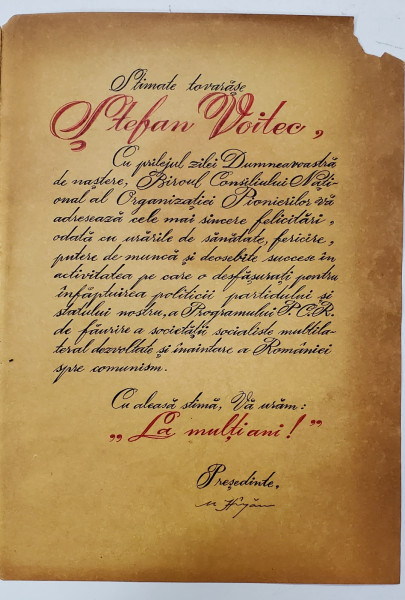 Stimate tovarășe
Ștefan Voitec,
Cu prilejul zilei Dumneavoastră
de naștere, Biroul Consiliului Nați-
onal al Organizației Pionierilor vă
adresează cele mai sincere felicitări,
odată cu urările de sănătate, fericire,
putere de muncă și deosebite succese în
activitatea pe care o desfășurați pentru
înfăptuirea politicii partidului și
statului nostru, a Programului P.C.R.
de făurire a societății socialiste multila-
teral dezvoltate și înaintare a României
spre comunism.
Cu aleasă stimă, Vă urăm:
„La mulți ani!”
Președinte,